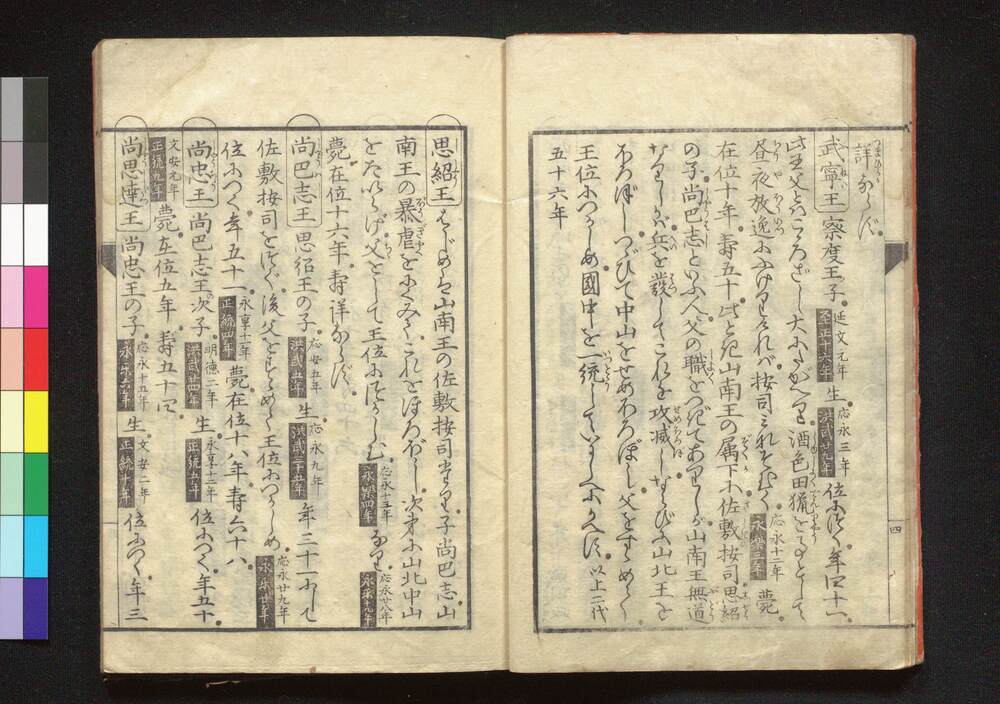 詳ならず
武寧王 察度王子 延文元年 至正十六年 生 応永三年 洪武廿九年 位につく年四十一
此王父とこころざし大にたがへり酒色田猟をことゝして
昼夜放逸にふけりければ按司みれそむく 応永十二年 永楽三年 薨
在位十年寿五十此とき山南王の属下に佐敷按司思紹
の子尚巴志といふ人父の職をつぎてありしが山南王無道
なりしかば兵を發してこれを攻滅しならびに山北王を
ほろぼしつゞいて中山をせめほろぼし父をすゝめて
王位につかしめ國中を一統していにしへにかへす 以上二代
五十六年
四
思紹王 はじめは山南王の佐敷按司たり子尚巴志山
南王の暴虐をにくみてこれをほろぼし次第に山北中山
をたいらげ父をして王位につかしむ 応永十三年 永楽四年 なり 応永廿八年 永楽十九年
薨在位十六年寿詳ならず
尚巴志王 思紹王の子 応安五年 洪武五年 生 応永九年 洪武三十五年 年三十一にして
佐敷按司をつぐ後父をすゝめて王位につかしめ 応永廿九年 永楽廿年
位につく年五十一 永享十一年 正統四年 薨在位十八年寿六十八
尚忠王 尚巴志王次子 明徳二年 洪武廿四年 生 永享十二年 正統五年 位につく年五十
文安元年 正統九年 薨在位五年寿五十四
尚思達王 尚忠王の子 応永十五年 永楽六年 生 文安二年 正統十年 位につく年三